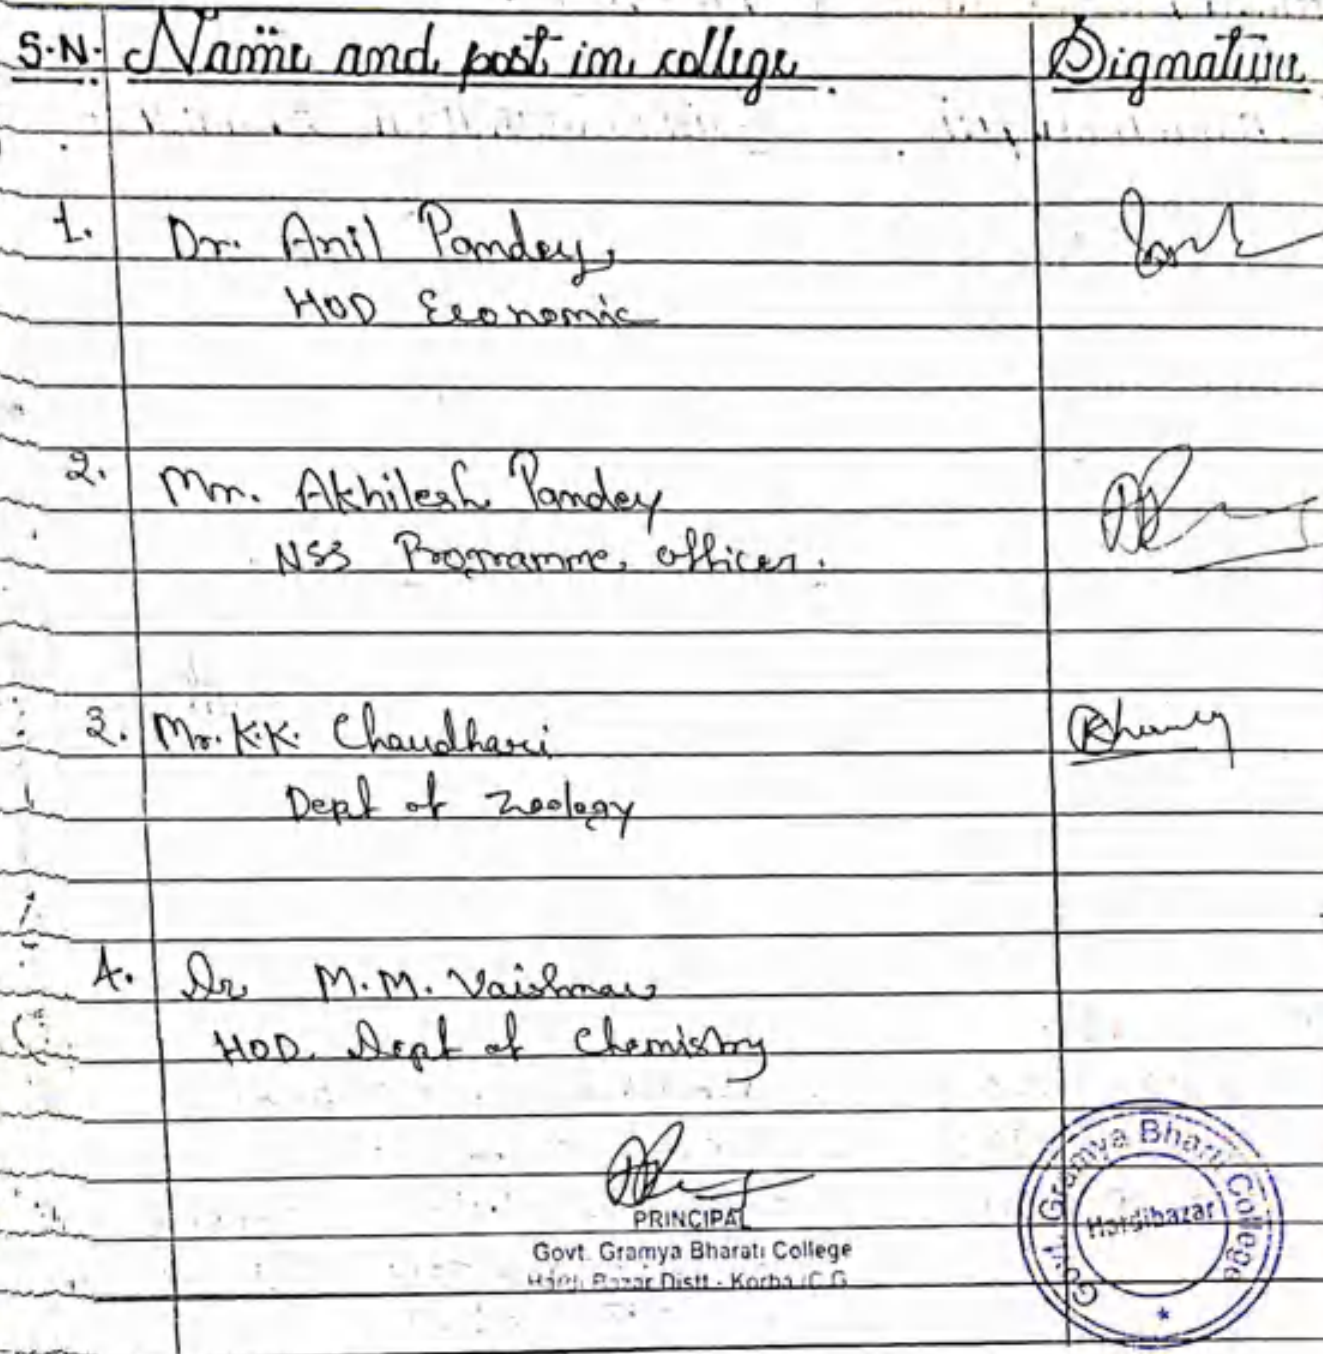 S.N. Name and post in college. Signature
1. Dr. Anil Pandey
HOD Economic
2. Mr. Akhilesh Pandey
NSS Programme officer.
3. Mr. K.K. Chaudhari
Dept of Zoology
4. Dr M.M. Vaishnav
HOD. Dept of Chemistry
PRINCIPAL
Govt. Gramya Bharati College
Hardi Bazar Distt - Korba (C.G.
Govt. Gramya Bharti College
Hardibazar